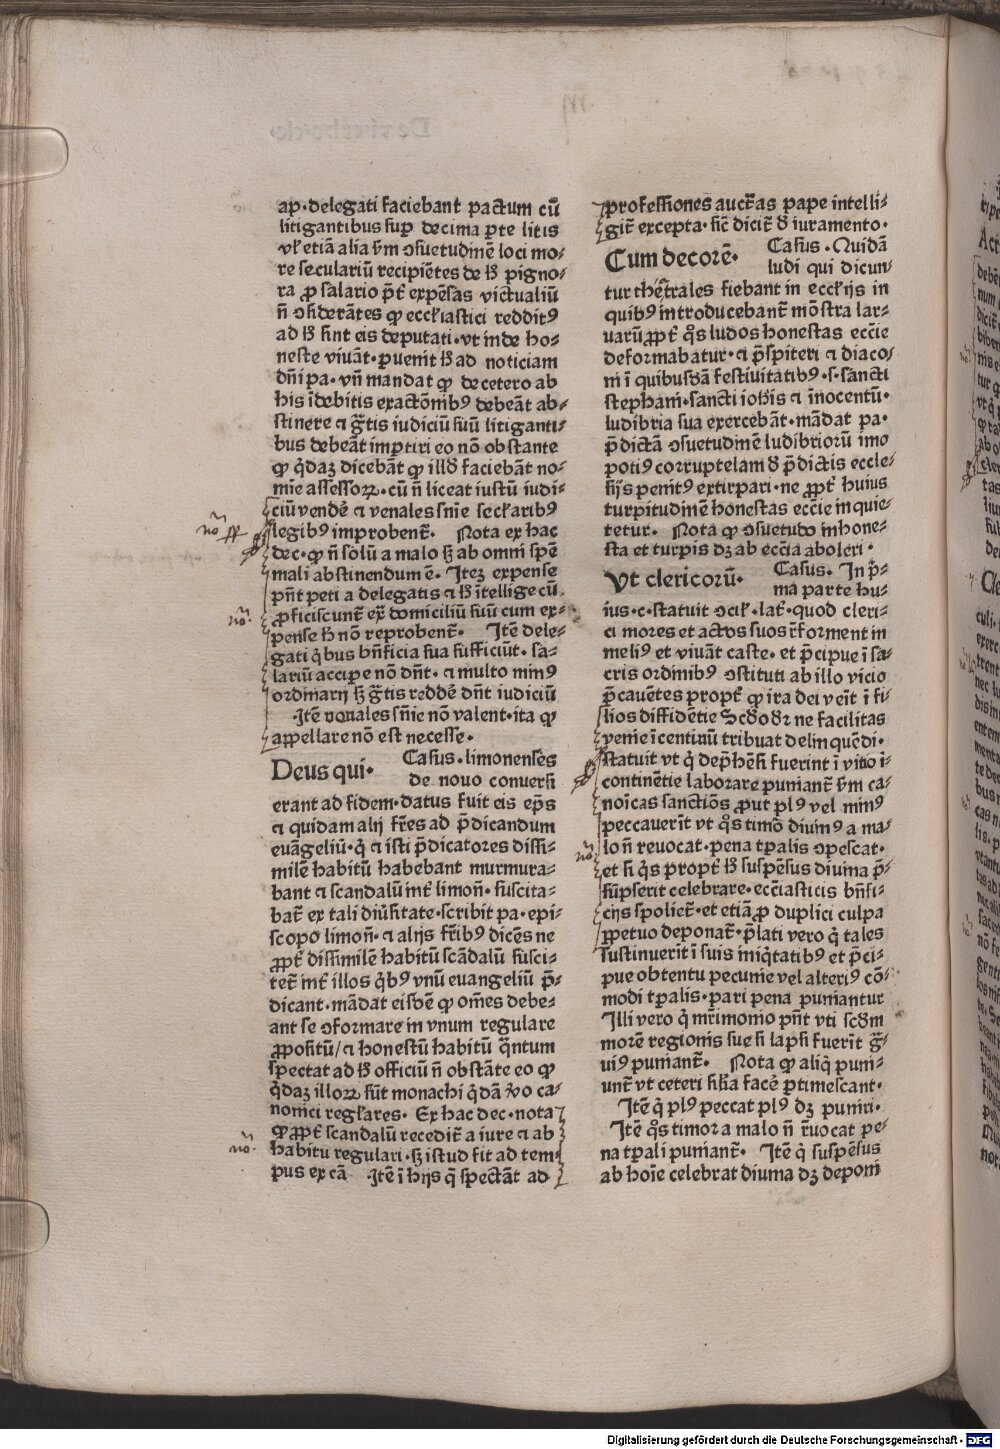 ap·delegati faciebant pactum cū
litigantibus sup̄ decima p̱te litis
vl̓ etiā alia ẜm ↄsuetudinē loci mo⸗
re seculariū recipiētes de h̓ pigno⸗
ra ꝓ salario p̄t̓ expēsas victualiū
n̄ ↄsiderātes ꝙ eccl̓iastici redditꝰ
ad h̓ sint eis deputati·vt inde ho⸗
neste viuāt·ꝑuenit h̓ ad noticiam
dn̄i pa·vn̄ mandat ꝙ de cetero ab
his īdebitis exactōnibꝰ debeāt ab⸗
stinere ⁊ gr̄tis iudiciū suū litiganti⸗
bus debeāt imꝑtiri eo nō obstante
ꝙ q̇daꝫ dicebāt ꝙ illđ faciebāt no⸗
mīe assessoꝝ·cū n̄ liceat iustū iudi⸗
ciū vendē ⁊ venales sn̄ie secl̓aribꝰ
legibꝰ improbent̄· Nota ex hac
dec·ꝙ n̄ solū a malo sꝫ ab omni spē
mali abstinendum ē· Iteꝫ expense
pn̄t peti a delegatis ⁊ h̓ ītellige cū
ꝓficiscunt̄ ex̄ domiciliū suū cum ex⸗
pense h̓ nō reprobent̄· Itē dele⸗
gati q̇bus bn̄ficia sua sufficiūt·sa⸗
lariū accipe nō dn̄t·⁊ multo minꝰ
ordinarij sꝫ gr̄tis reddē dn̄t iudiciū
·Itē venales sn̄ie nō valent·ita ꝙ
appellare nō est necesse·
Deus qui· Casus·limonenses
de nouo conuersi
erant ad fidem·datus fuit eis ep̄s
⁊ quidam alij fr̄es ad p̄dicandum
euāgeliū·q̇ ⁊ isti p̄dicatores dissi⸗
milē habitū habebant murmura⸗
bant ⁊ scandalū int̓ limoñ·suscita⸗
bat̄ ex tali diūsitate·scribit pa·epi⸗
scopo limoñ·⁊ alijs fr̄ibꝰ dicēs ne
ꝓpt̓ dissimilē habitū scādalū susci⸗
tet̄ int̓ illos q̇bꝰ vnū euangeliū p̄⸗
dicant·mādat eisdē ꝙ om̄es debe⸗
ant se ↄformare in vnum regulare
ꝓpositū/⁊ honestū habitū q̄ntum
spectat ad h̓ officiū n̄ obstāte eo ꝙ
q̇daꝫ illoꝝ sūt monachi q̇dā v̓o ca⸗
nonici regl̓ares· Ex hac dec·nota
ꝙ ꝓpt̓ scandalū recedit̄ a iure ⁊ ab
habitu regulari·sꝫ istud fit ad tem⸗
pus ex cā ·Itē ī hijs q̄ spectāt ad
professiones auct̄as pape intelli⸗
git̄ excepta·sic̄ dicit̄ đ iuramento·
Cum decorē· Casus·Quidā
ludi qui dicun⸗
tur theatrales fiebant in eccl̓ijs in
quibꝰ introducebant̄ mōstra lar⸗
uarū ꝓpt̓ q̇s ludos honestas ecc̄ie
deformabatur·⁊ p̄spiteri ⁊ diaco⸗
ni ī quibusdā festiuitatibꝰ·s·sancti
stephani·sancti ioh̄is ⁊ īnocentū·
ludibria sua exercebāt·mādat pa·
p̄dictā ↄsuetudinē ludibriorū imo
potiꝰ corruptelam đ p̄dictis eccle⸗
sijs penitꝰ extirpari·ne ꝓpt̓ huius
turpitudinē honestas ecc̄ie inquie⸗
tetur. Nota ꝙ ↄsuetudo inhone⸗
sta et turpis dꝫ ab ecc̄ia aboleri·
Vt clericorū· Casus· In p̄⸗
ma parte hu⸗
ius·c·statuit ↄcil̓·lat̄·quod cleri⸗
ci mores et actos suos r̄forment in
meliꝰ et viuāt caste·et p̄cipue ī sa⸗
cris ordinibꝰ ↄstituti ab illo vicio
p̄cauētes propt̓ qd̓ ira dei veīt ī fi⸗
lios diffidētie Scđo đr ne facilitas
venie īcentiuū tribuat delinquēdi·
statuit vt q̇ dep̄hēsi fuerint ī vitio ī⸗
continētie laborare puniant̄ ẜm ca⸗
noīcas sanctiōs ꝓut plꝰ vel minꝰ
peccauerīt vt q̇s timō diuinꝰ a ma⸗
lo n̄ reuocat·pena tp̄alis ↄpescat·
et si q̇s propt̓ h̓ suspēsus diuina p̄⸗
sūpserit celebrare·ecc̄iasticis bn̄fi⸗
cijs spoliet̄·et etiā ꝓ duplici culpa
ꝑpetuo deponat̄·p̄lati vero q̇ tales
sustinuerīt ī suis iniq̇tatibꝰ et p̄ci⸗
pue obtentu pecunie vel alteriꝰ cō⸗
modi tp̄alis·pari pena puniantur
Illi vero q̇ mr̄imonio pn̄t vti scđm
morē regionis sue si lapsi fuerīt gr̄⸗
uiꝰ puniant̄· Nota ꝙ aliq̇ puni⸗
unt̄ vt ceteri sil̓ia facē ꝑtimescant·
Itē q̇ plꝰ peccat plꝰ dꝫ puniri·
Itē q̇s timor a malo n̄ r̄uocat pe⸗
na tp̄ali puniant̄· Itē q̇ suspēsus
ab hoīe celebrat diuina dꝫ deponi
nō
nō
nō
nō
Digitalisierung gefördert durch die Deutsche Forschungsgemeinschaft - DFG